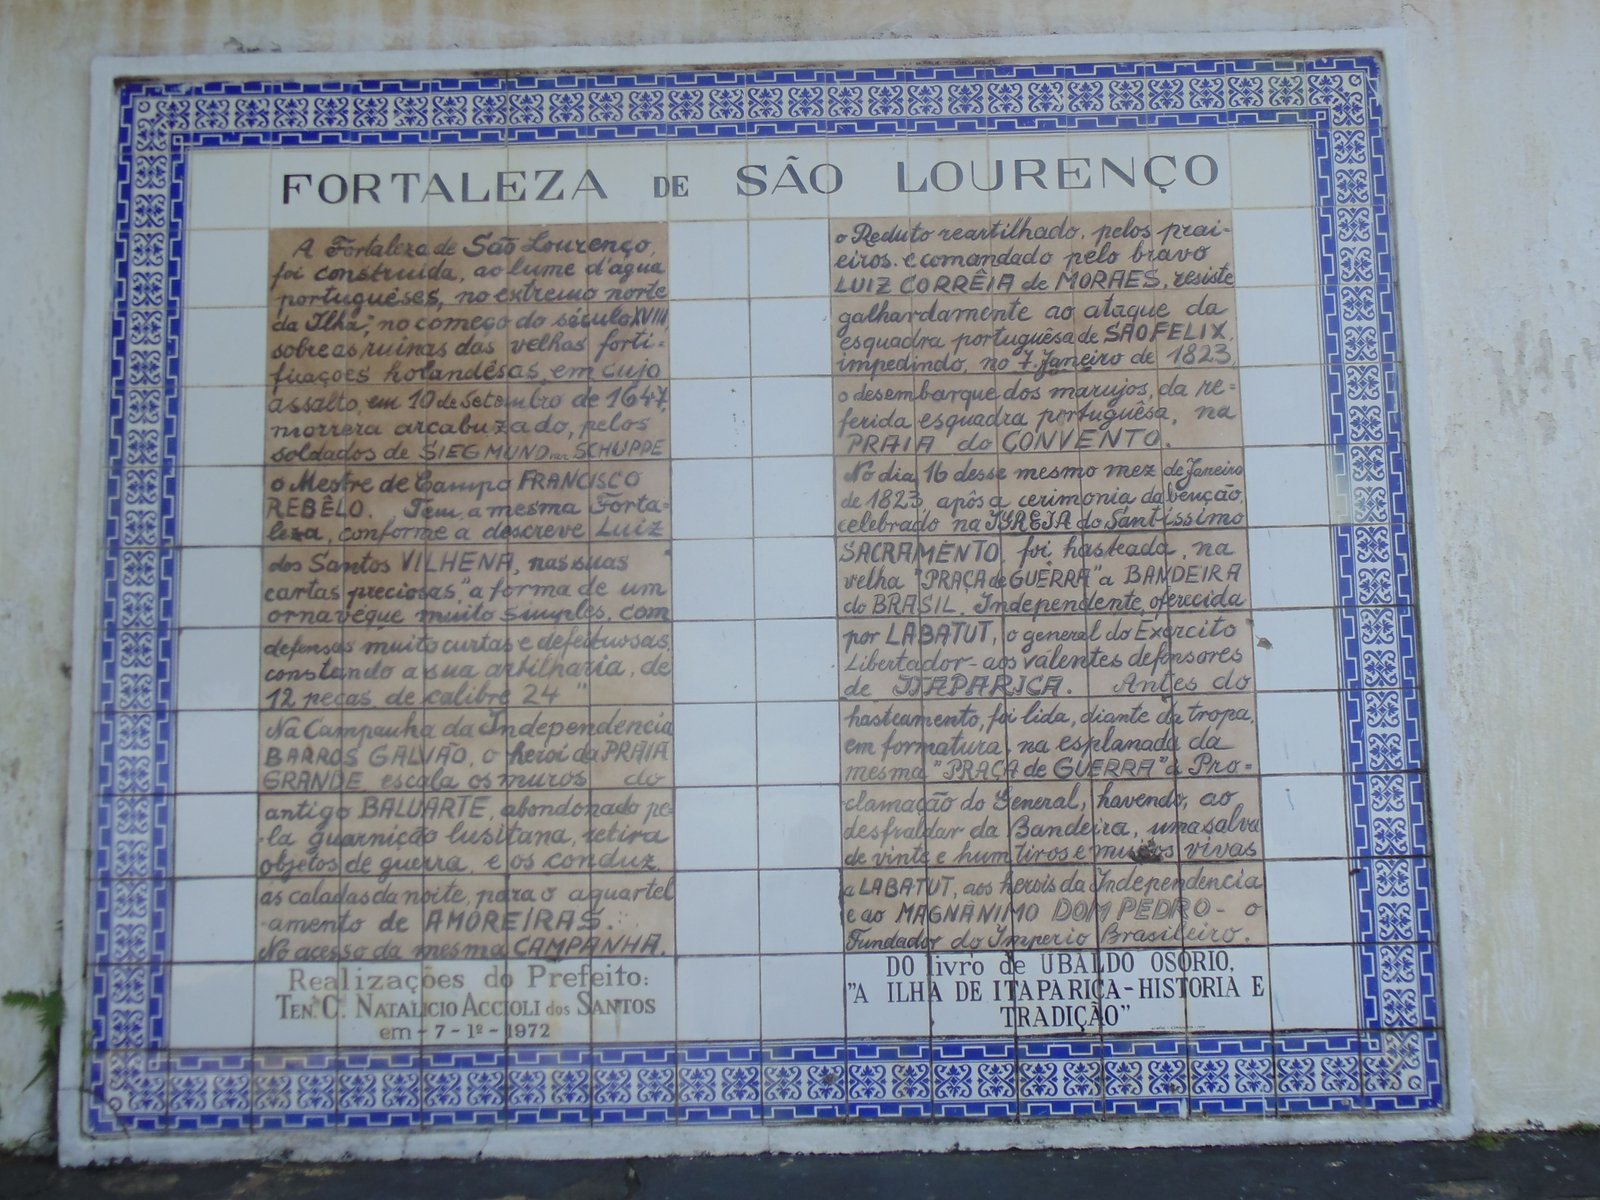 FORTALEZA DE SÃO LOURENÇO
A Fortaleza de São Lourenço,
foi construida, ao lume d'agua
portuguêses, no extremo norte
da Ilha, no começo do século XVIII,
sobre as ruinas das velhas forti-
ficações holandêsas, em cujo
assalto, em 10 de Setembro de 1647,
morrera arcabuzado, pelos
soldados de SIEGMUND SCHUPPE
o Mestre de Campo FRANCISCO
REBÊLO. Tem, a mesma Forta-
leza, conforme a descreve Luiz
dos Santos VILHENA, nas suas
cartas preciosas "a forma de um
ornaveque muito simples, com
defensas muito curtas e defeituosas,
constando a sua artilharia, de
12 peças de calibre 24"
Na Campanha da Independencia
BARROS GALVÃO, o heroi da PRAIA
GRANDE escala os muros do
antigo BALUARTE, abondonado pe-
la guarnição lusitana, retira
objetos de guerra, e os conduz,
ás caladas da noite, para o aquartel
amento de AMOREIRAS.
No acesso da mesma CAMPANHA,
Realizações do Prefeito:
TEN. Cel. NATALICIO ACCIOLI dos SANTOS
em - 7 - 1º - 1972
o Reduto reartilhado, pelos prai-
eiros, e comandado pelo bravo
LUIZ CORRÊIA de MORAES, resiste
galhardamente ao ataque da
esquadra portuguêsa de SÃO FELIX,
impedindo, no 7. Janeiro de 1823,
o desembarque dos marujos, da re-
ferida esquadra portuguêsa, na
PRAIA do CONVENTO.
No dia, 16 desse mesmo mez de Janeiro
de 1823, após a cerimonia da benção,
celebrado na IGREJA do Santissimo
SACRAMENTO, foi hasteada, na
velha "PRAÇA de GUERRA" a BANDEIRA
do BRASIL. Independente, oferecida
por LABATUT, o general do Exercito
Libertador - aos valentes defensores
de ITAPARICA. Antes do
hasteamento, foi lida, diante da tropa,
em formatura, na esplanada da
mesma "PRAÇA de GUERRA" a Pro-
clamação do General, havendo, ao
desfraldar da Bandeira, uma salva
de vinte e hum tiros e muitos vivas
a LABATUT, aos herois da Independencia
e ao MAGNÂNIMO DOM PEDRO - o
Fundador do Imperio Brasileiro.
DO livro de UBALDO OSÓRIO,
"A ILHA DE ITAPARICA-HISTORIA E
TRADIÇÃO"